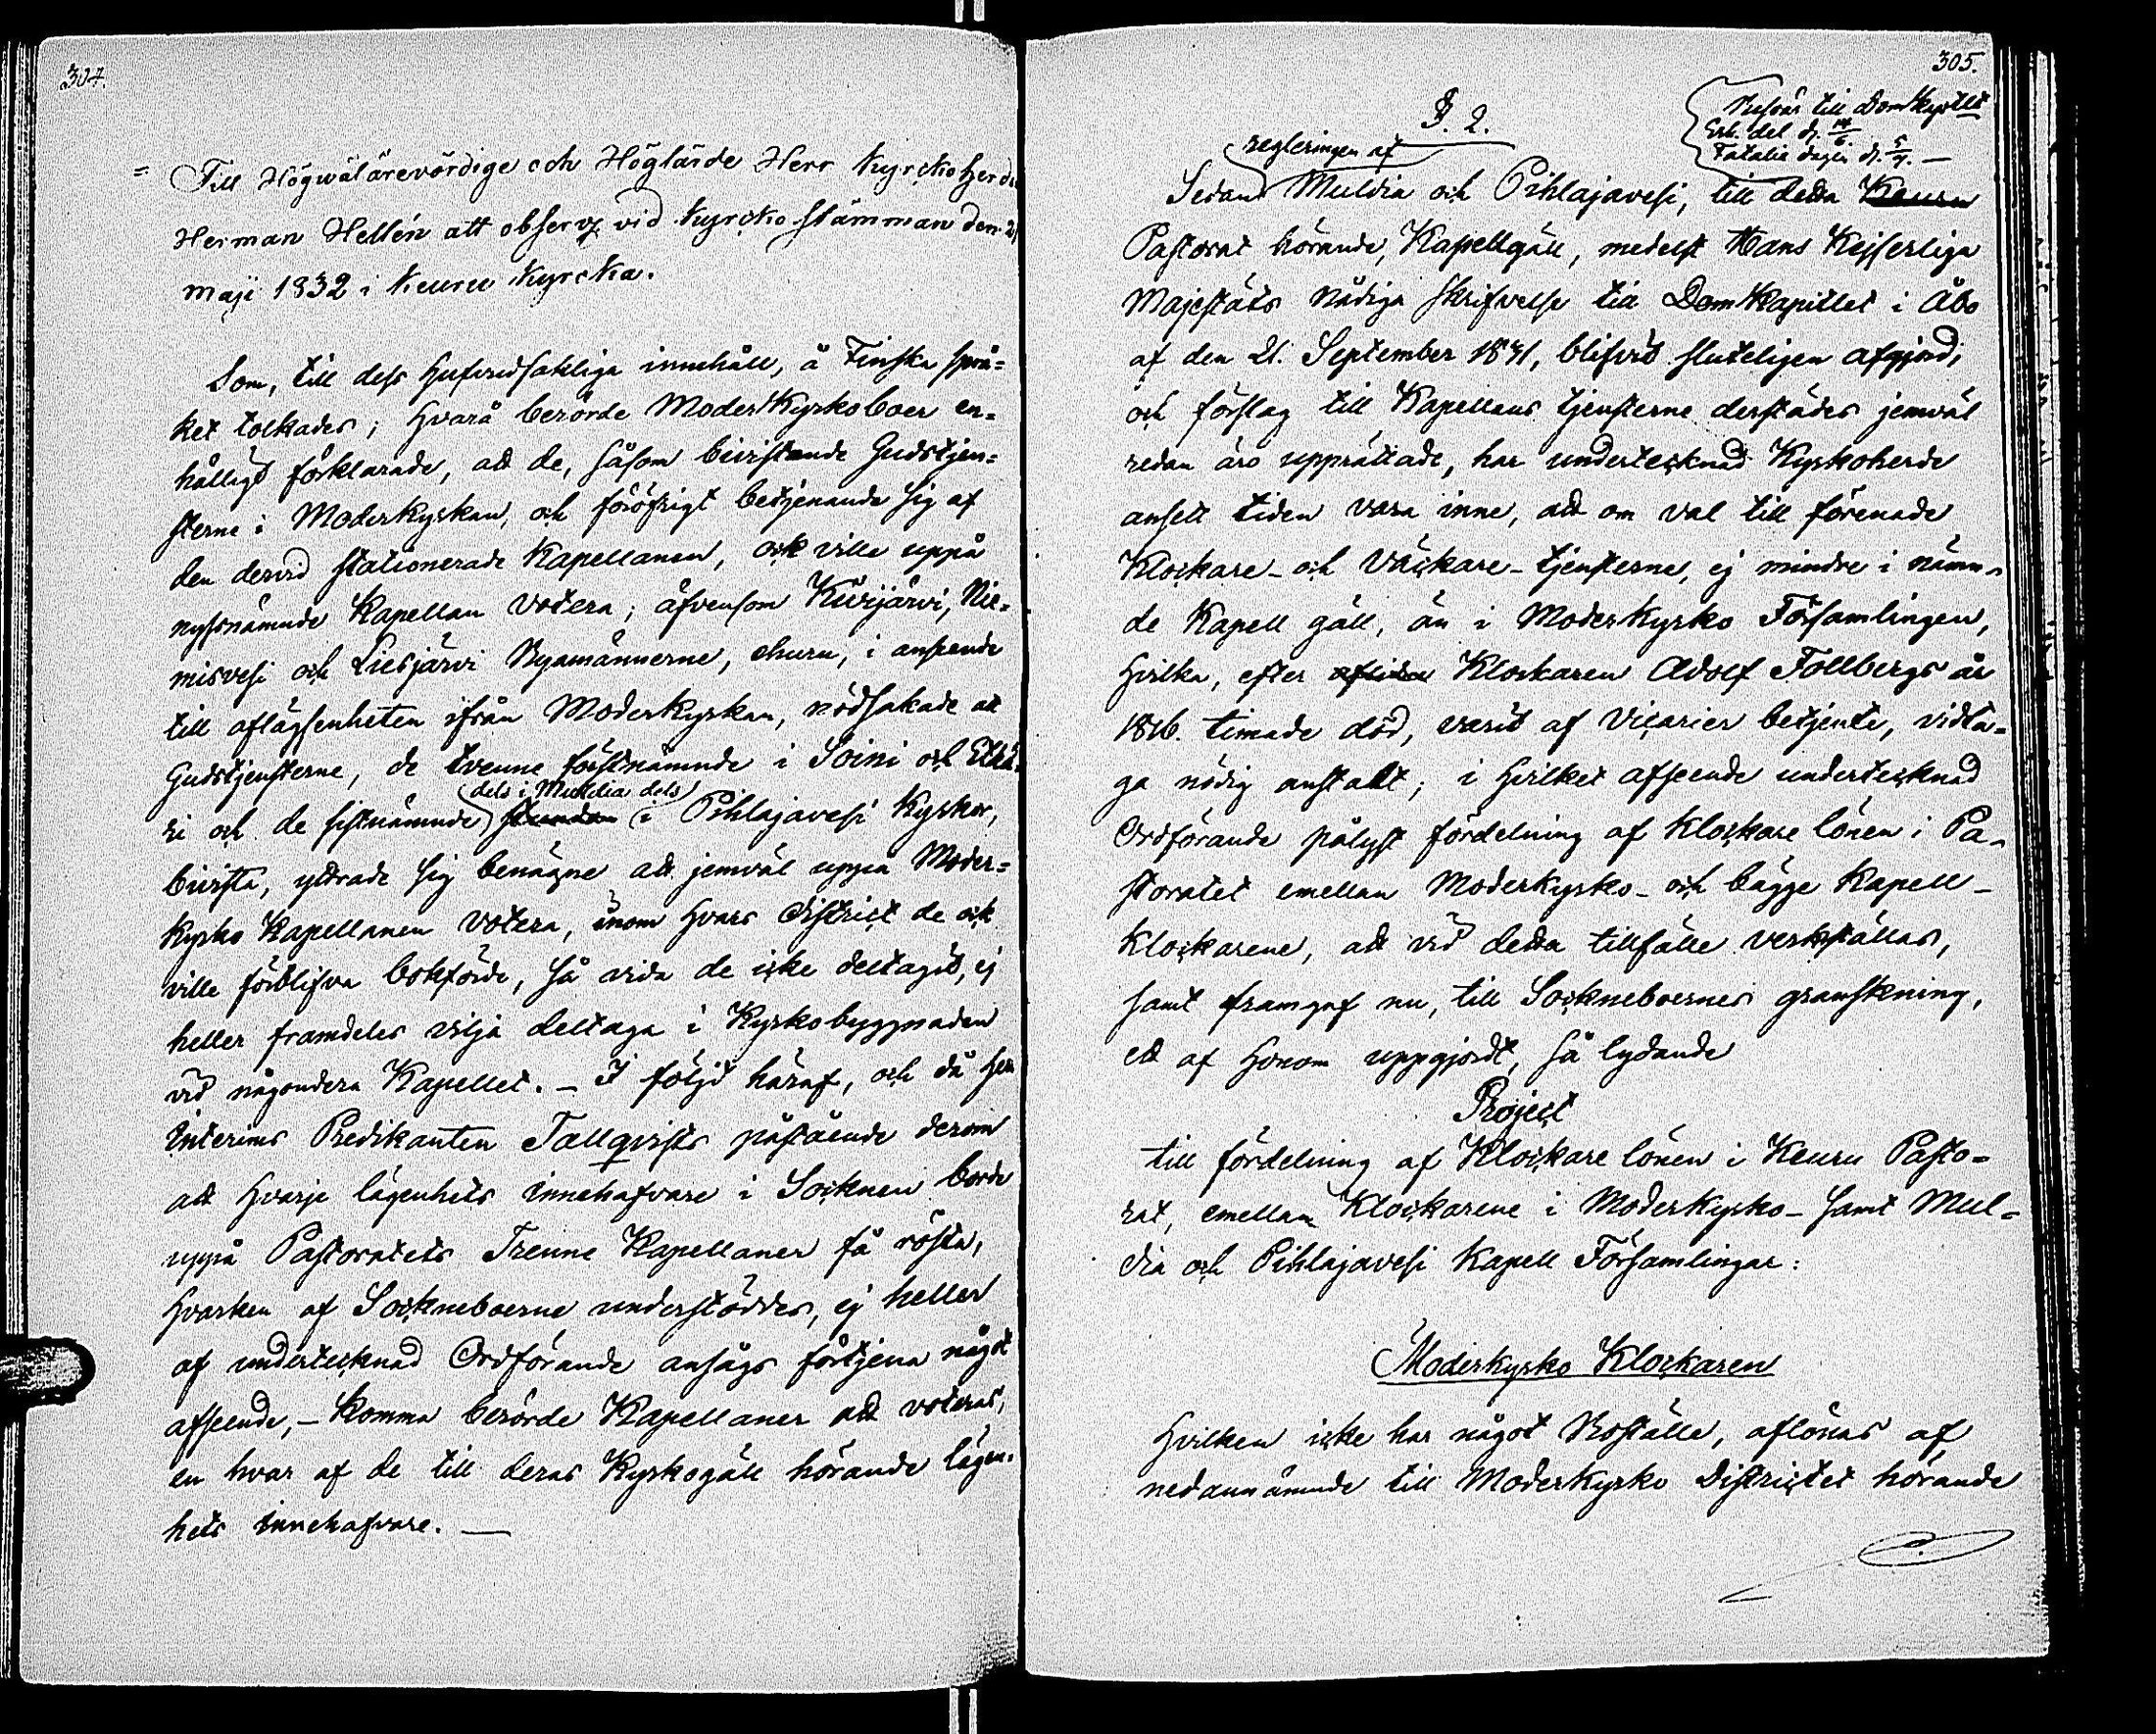 304.
= Till Högwälärevördige och Höglärde Herr Kyrckoherden
Herman Hellén att observ: vid Kyrcko stämman den 21
Maji 1832 i Keuru Kyrcka.
Som, till dess hufvudsakliga innehåll, å Finska språ=
ket tolkades; hvarå berörde Moderkyrkoboer en=
hälligt förklarade, att de, såsom bivistande Gudstjen=
sterne i Moderkyrkan, och föröfrigt betjenande sig af
den dervid stationerade Kapellanen, ock ville uppå
nyssnämnde Kapellan votera; äfvensom Kivijärvi, Nie=
misvesi och Liesjärvi Byamännerne, churu, i anseende
till aflägsenheten ifrån Moderkyrkan, nödsakade att
Gudstjensterne, de tvenne förstnämnde i Soini och Etsä=
dels i Muldia dels
ri och de sistnämnde stundom i Pihlajavesi Kyrkor,
bivista, yttrade sig benägne att jemväl uppå Moder=
kyrko Kapellanen votera, inom hvars District de ock
ville förblifva bokförde, så vida de icke deltagit, ej
heller framdeles vilja deltaga i Kyrkobyggnaden
vid någondera Kapellet. — I följd häraf, och då Herr
Interims Predikanten Tallqvists påstående derom
att hvarje lägenhets innehafvare i Socknen borde
uppå Pastoratets Trenne Kapellaner få rösta,
hvarken af Sockneboerne understöddes, ej heller
af undertecknad Ordförande ansågs förtjena något
afseende, — komma berörde Kapellaner att voteras,
en hvar af de till deras Kyrkogäll hörande lägen=
hets innehafvare. —
305.
§. 2.
till Domkapitlet
Erh. del d. 14/6.
Fatalie dagen d. 5/7. —
regleringen af
Sedan Muldia och Pihlajavesi, till detta Keuru
Pastorat hörande, Kapellgäll, medelst Hans Kejserliga
Majestäts Nådiga Skrifvelse till Domkapitlet i Åbo
af den 21. September 1831, blifvit sluteligen afgjord;
och förslag till Kapellans tjensterne derstädes jemväl
redan äro upprättade, har undertecknad Kyrkoherde
ansett tiden vara inne, att om val till förenade
Klockare- och Väckare-tjensterne, ej mindre i nämn=
de Kapell gäll, än i Moderkyrko Församlingen,
hvilka, efter aflidne Klockaren Adolf Follbergs år
1816. timade död, varit af Vicarier betjente, vidta=
ga nödig anstalt; i hvilket afseende undertecknad
Ordförande pålyst fördelning af Klockare lönen i Pa=
storatet emellan Moderkyrko- och bägge Kapell-
Klockarene, att vid detta tillfälle verkställas,
samt framgaf nu, till Sockneboernes granskning,
ett af honom uppgjordt, så lydande
Project
till fördelning af Klockare lönen i Keuru Pasto=
rat, emellan Klockarene i Moderkyrko- samt Mul=
dia och Pihlajavesi Kapell Församlingar:
Moderkyrko Klockaren
hvilken icke har något Boställe, aflönas af
nedannämnde till Moderkyrko Districtet hörande